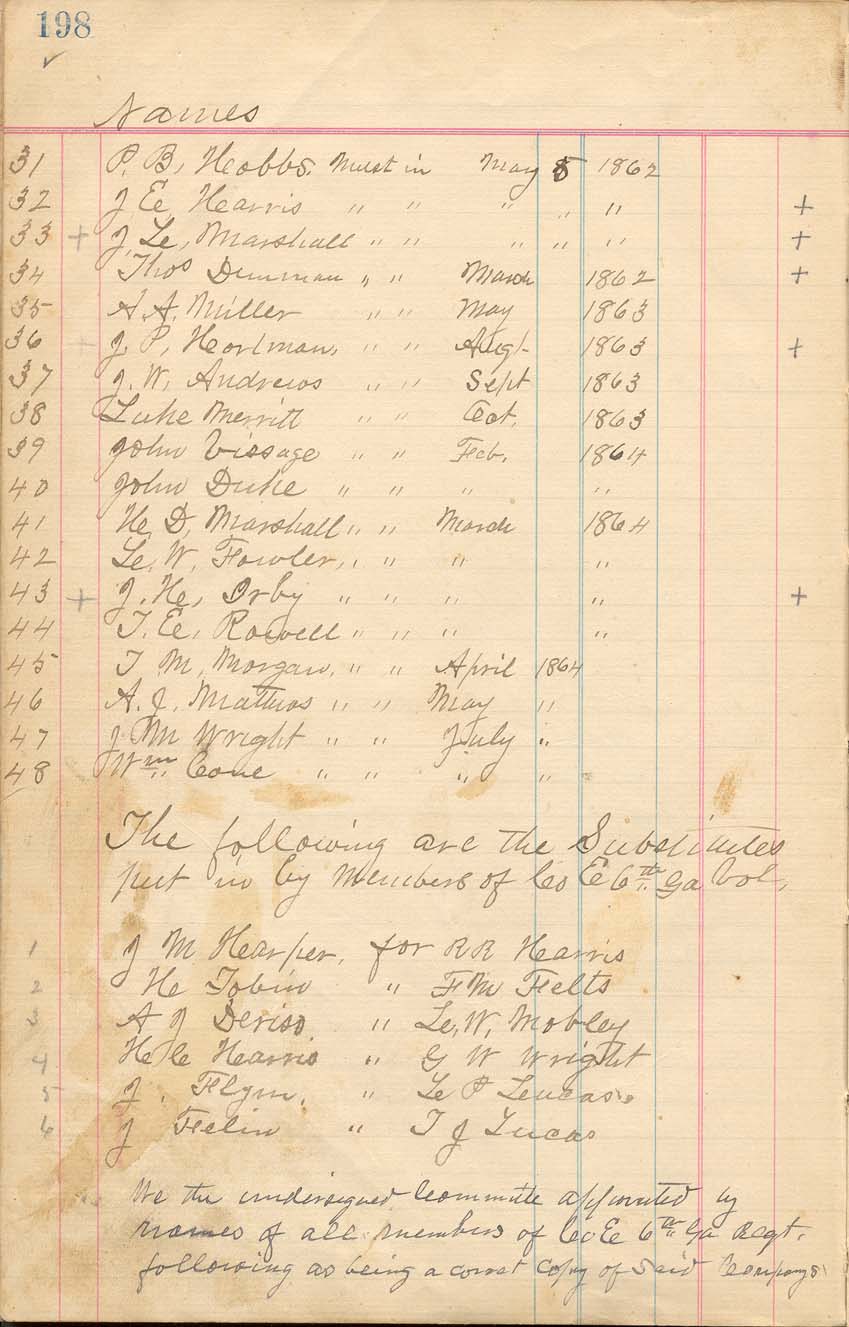 198
✓
Names
31 P. B, Hobbs. Must in May 5 1862
32 J E Harris " " " " " +
33 + J, L, Marshall " " " " " +
34 Thos Denman " " March 1862 +
35 A. A. Miller " " May 1863
36 J. P, Hortman, " " Augt. 1863 +
37 J. W, Andrews " " Sept 1863
38 Luke Merritt " " Oct. 1863
39 John Vissage " " Feb. 1864
40 John Duke " " " "
41 H, D, Marshall " " March 1864
42 L, W, Fowler, " " " "
43 + J. H, Orby " " " " +
44 T. E, Rowell " " " "
45 T M, Morgan, " " April 1864
46 A. J. Mathus " " May "
47 J M Wright " " July "
48 Wm Cone " " " "
The following are the Substitutes
put in by Members of Co E 6th Ga Vol,
1 J M Harper, for R R Harris
2 H Tobin " F M Felts
3 A J Deriso " L, W, Mobley
4 H C Harris " G W Wright
5 J. Flynn, " L P Lucas
6 J Felin " T J Lucas
We the undersigned Committe appointed by
names of all members of Co E 6th Ga Regt.
following as being a corret Copy of Said Companys